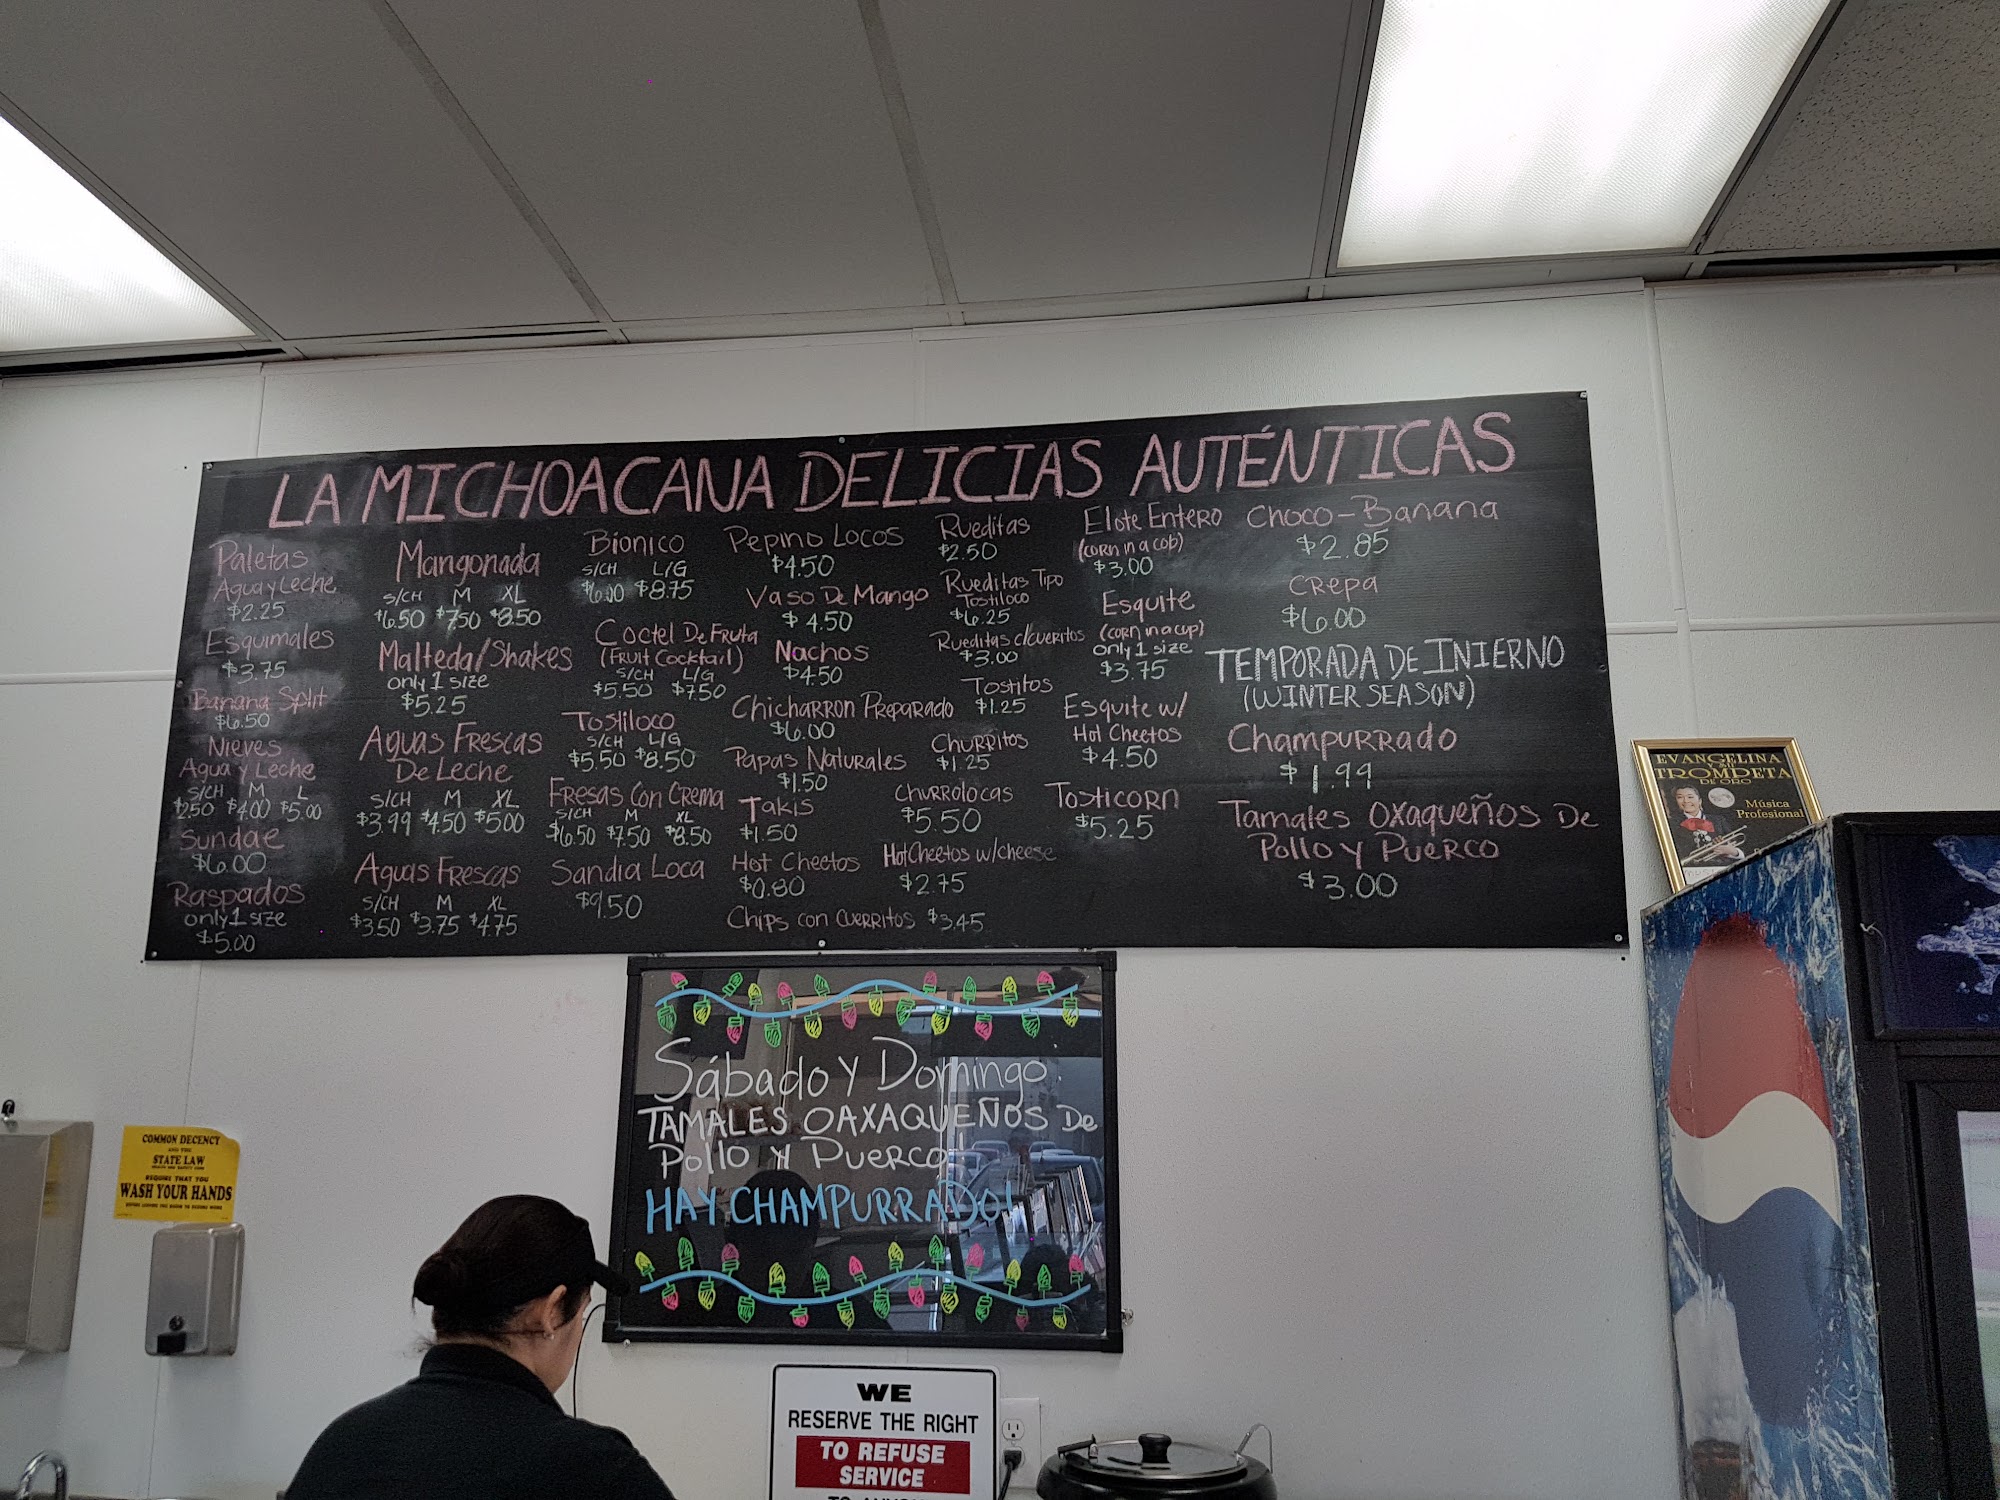 LA MICHOACANA DELICIAS AUTÉNTICAS
Paletas
Agua y Leche
$2.25
Esquimales
$3.75
Banana Split
$6.50
Nieves
Agua y Leche
S/CH M L
$2.50 $4.00 $5.00
Sundae
$6.00
Raspados
only 1 size
$5.00
Mangonada
S/CH M XL
$6.50 $7.50 $8.50
Malteda/Shakes
only 1 size
$5.25
Aguas Frescas
De Leche
S/CH M XL
$3.99 $4.50 $5.00
Aguas Frescas
S/CH M XL
$3.50 $3.75 $4.75
Bionico
S/CH L/G
$6.00 $8.75
Coctel De Fruta
(Fruit Cocktail)
S/CH L/G
$5.50 $7.50
Tostiloco
S/CH L/G
$5.50 $8.50
Fresas Con Crema
S/CH M XL
$6.50 $7.50 $8.50
Sandia Loca
$9.50
Pepino Locos
$4.50
Vaso De Mango
$4.50
Nachos
$4.50
Chicharron Preparado
$6.00
Papas Naturales
$1.50
Takis
$1.50
Hot Cheetos
$0.80
Chips con Cuerritos $3.45
Rueditas
$2.50
Rueditas Tipo
Tostiloco
$6.25
Rueditas c/cueritos
$3.00
Tostitos
$1.25
Churritos
$1.25
Churrolocas
$5.50
Hot Cheetos w/cheese
$2.75
Elote Entero
(corn in a cob)
$3.00
Esquite
(corn in a cup)
only 1 size
$3.75
Esquite w/
Hot Cheetos
$4.50
Tosticorn
$5.25
Choco-Banana
$2.85
Crepa
$6.00
TEMPORADA DE INIERNO
(WINTER SEASON)
Champurrado
$1.99
Tamales Oxaqueños De
Pollo y Puerco
$3.00
EVANGELINA
Y SU
TROMPETA
DE ORO
Música
Profesional
Sábado y Domingo
TAMALES OAXAQUEÑOS De
Pollo y Puerco!
HAY CHAMPURRADO!
COMMON DECENCY
AND THE
STATE LAW
HEALTH AND SAFETY CODE
REQUIRE THAT YOU
WASH YOUR HANDS
WE
RESERVE THE RIGHT
TO REFUSE
SERVICE